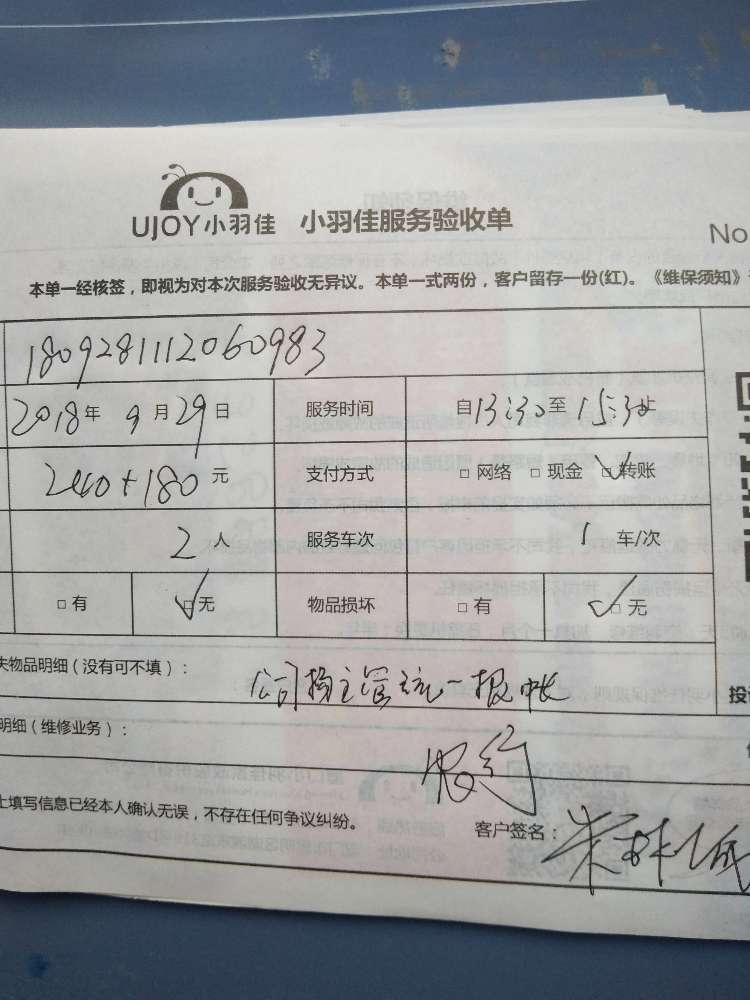 UJOY小羽佳 小羽佳服务验收单
No
本单一经核签，即视为对本次服务验收无异议。本单一式两份，客户留存一份(红)。《维保须知》
1809281112060983
2018年9月29日 服务时间 自13:30至15:30
240+180元 支付方式 □网络 □现金 □转账
2人 服务车次 1车/次
□有 □无 物品损坏 □有 □无
失物品明细（没有可不填）： 公司杨主管统一报帐
明细（维修业务）：
上填写信息已经本人确认无误，不存在任何争议纠纷。
客户签名：
投诉